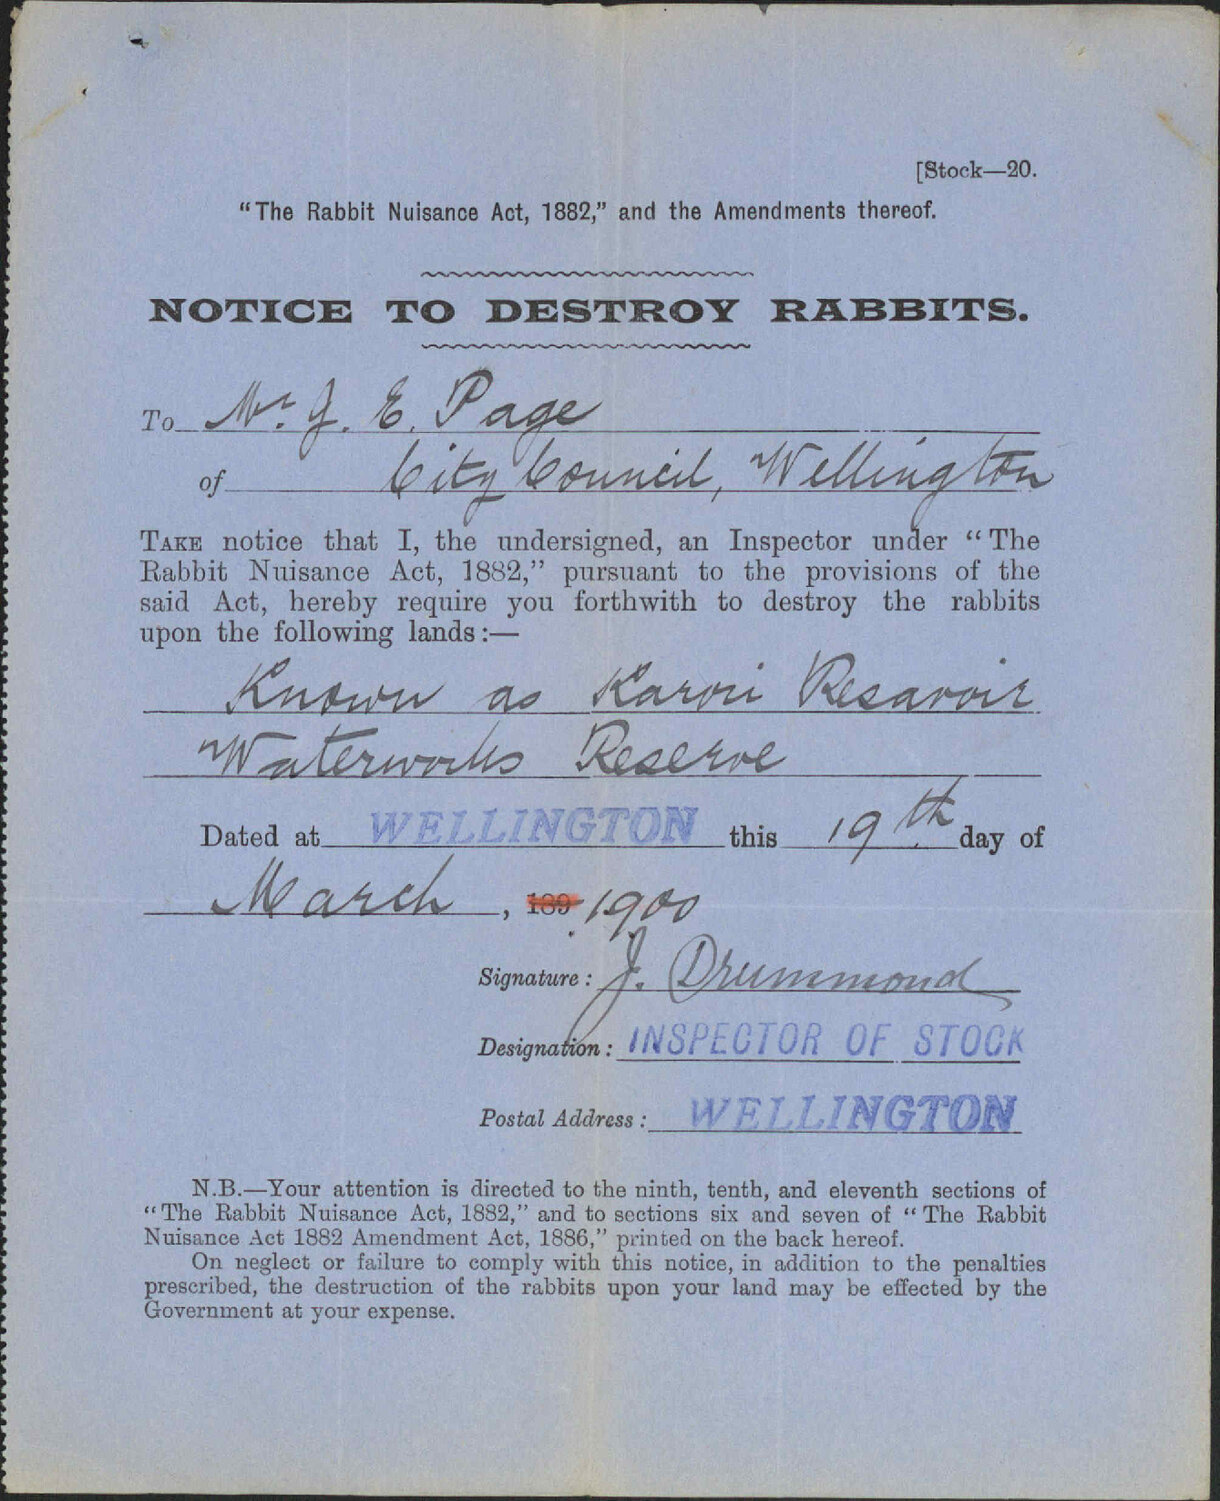 [Stock—20.
“The Rabbit Nuisance Act, 1882,” and the Amendments thereof.
NOTICE TO DESTROY RABBITS.
To Mr. J. E. Page
of City Council, Wellington
TAKE notice that I, the undersigned, an Inspector under “The
Rabbit Nuisance Act, 1882,” pursuant to the provisions of the
said Act, hereby require you forthwith to destroy the rabbits
upon the following lands:—
Known as Karori Resavoir
Waterworks Reserve
Dated at WELLINGTON this 19th day of
March, 189 1900
Signature: J. Drummond
Designation: INSPECTOR OF STOCK
Postal Address: WELLINGTON
N.B.—Your attention is directed to the ninth, tenth, and eleventh sections of
“The Rabbit Nuisance Act, 1882,” and to sections six and seven of “The Rabbit
Nuisance Act 1882 Amendment Act, 1886,” printed on the back hereof.
On neglect or failure to comply with this notice, in addition to the penalties
prescribed, the destruction of the rabbits upon your land may be effected by the
Government at your expense.